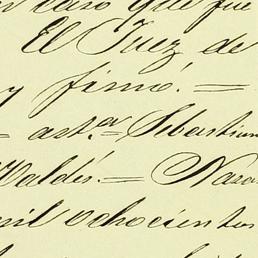 caso que fue
El Juez de
y firmó. =
= art.a = Sebastian
Valdés. =
mil ochocientos